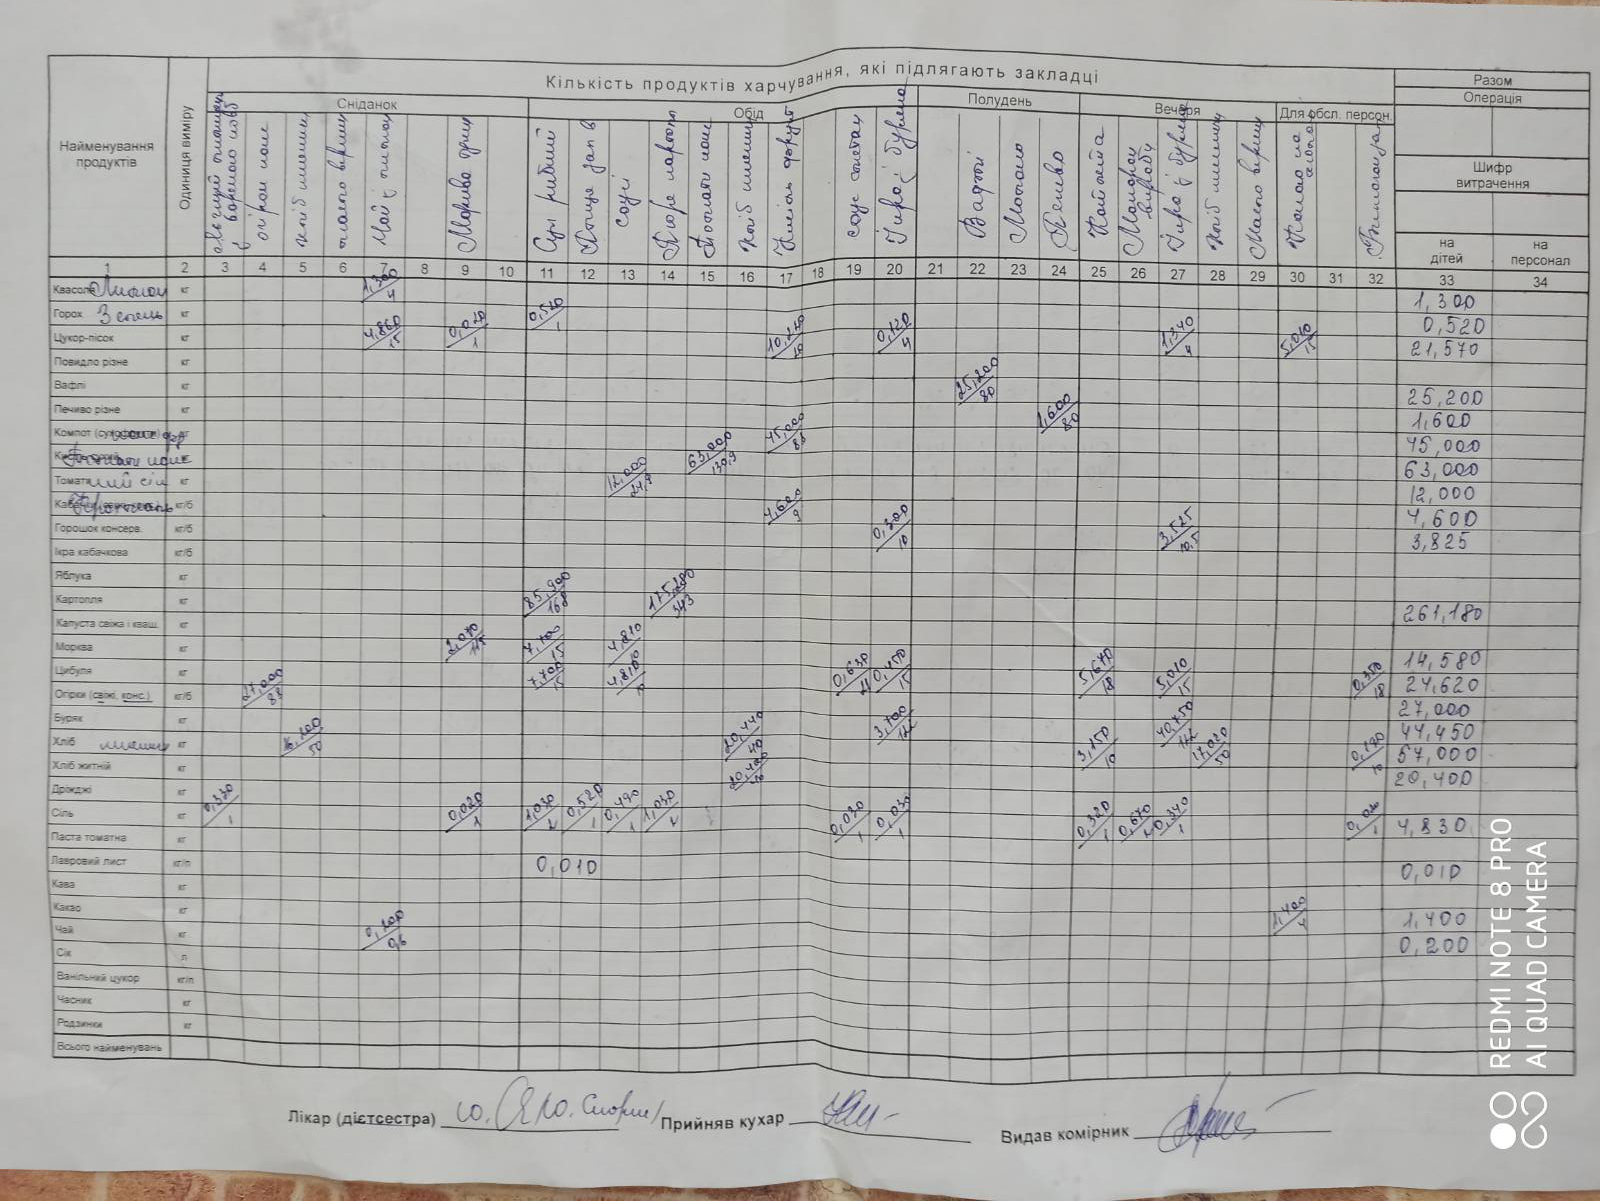 Кількість продуктів харчування, які підлягають закладці
Разом
Операція
Шифр витрачення
на дітей
на персонал
Найменування продуктів
Одиниця виміру
Сніданок
Обід
Полудень
Вечеря
Для обсл. персон.
огірки
хліб
масло
Чай з лимоном
Морква
Суп рибний
соус
Пюре картопл
Томати
Хліб
Кисіль
соус
Ікра з буряка
Вафлі
Молоко
Печиво
Котлета
Макарон вироби
Ікра з буряка
Хліб
Масло
Какао на
1 2 3 4 5 6 7 8 9 10 11 12 13 14 15 16 17 18 19 20 21 22 23 24 25 26 27 28 29 30 31 32 33 34
Квасоля Лимон кг 1,300/4 1,300
Горох Зелень кг 0,520/1 0,520
Цукор-пісок кг 4,860/15 0,020/1 10,220 0,120/4 1,340/4 5,010/15 21,570
Повидло різне кг
Вафлі кг 25,200/80 25,200
Печиво різне кг 1,600/80 1,600
Компот (сухофрукти) кг 45,000/88 45,000
кг 63,000/139,9 63,000
Томатний сік кг 12,000/24,9 12,000
Крохмаль кг/б 4,600/9 4,600
Горошок консерв. кг/б 0,300/10 3,525/10,5 3,825
Ікра кабачкова кг/б
Яблука кг
Картопля кг 85,900/168 175,280/343 261,180
Капуста свіжа і кваш. кг
Морква кг 2,070 7,700/15 4,810/10 14,580
Цибуля кг 7,700/15 4,810/10 0,630 0,450/15 5,670/18 5,010/15 0,350/18 24,620
Огірки (свіжі, конс.) кг/б 27,000/88 27,000
Буряк кг 3,700/122 40,750/122 44,450
Хліб кг 16,200/50 20,440/40 3,150/10 17,020/50 0,190/10 57,000
Хліб житній кг 20,400/40 20,400
Дріжджі кг
Сіль кг 0,330/1 0,020/1 1,030/2 0,520/1 0,490/1 1,030/2 0,020/1 0,030/1 0,320/1 0,670/2 0,340/1 0,020/1 4,830
Паста томатна кг
Лавровий лист кг/п 0,010 0,010
Кава кг
Какао кг 1,400/4 1,400
Чай кг 0,200/0,6 0,200
Сік л
Ванільний цукор кг/п
Часник кг
Родзинки кг
Всього найменувань
Лікар (дієтсестра)
Прийняв кухар
Видав комірник
REDMI NOTE 8 PRO
AI QUAD CAMERA